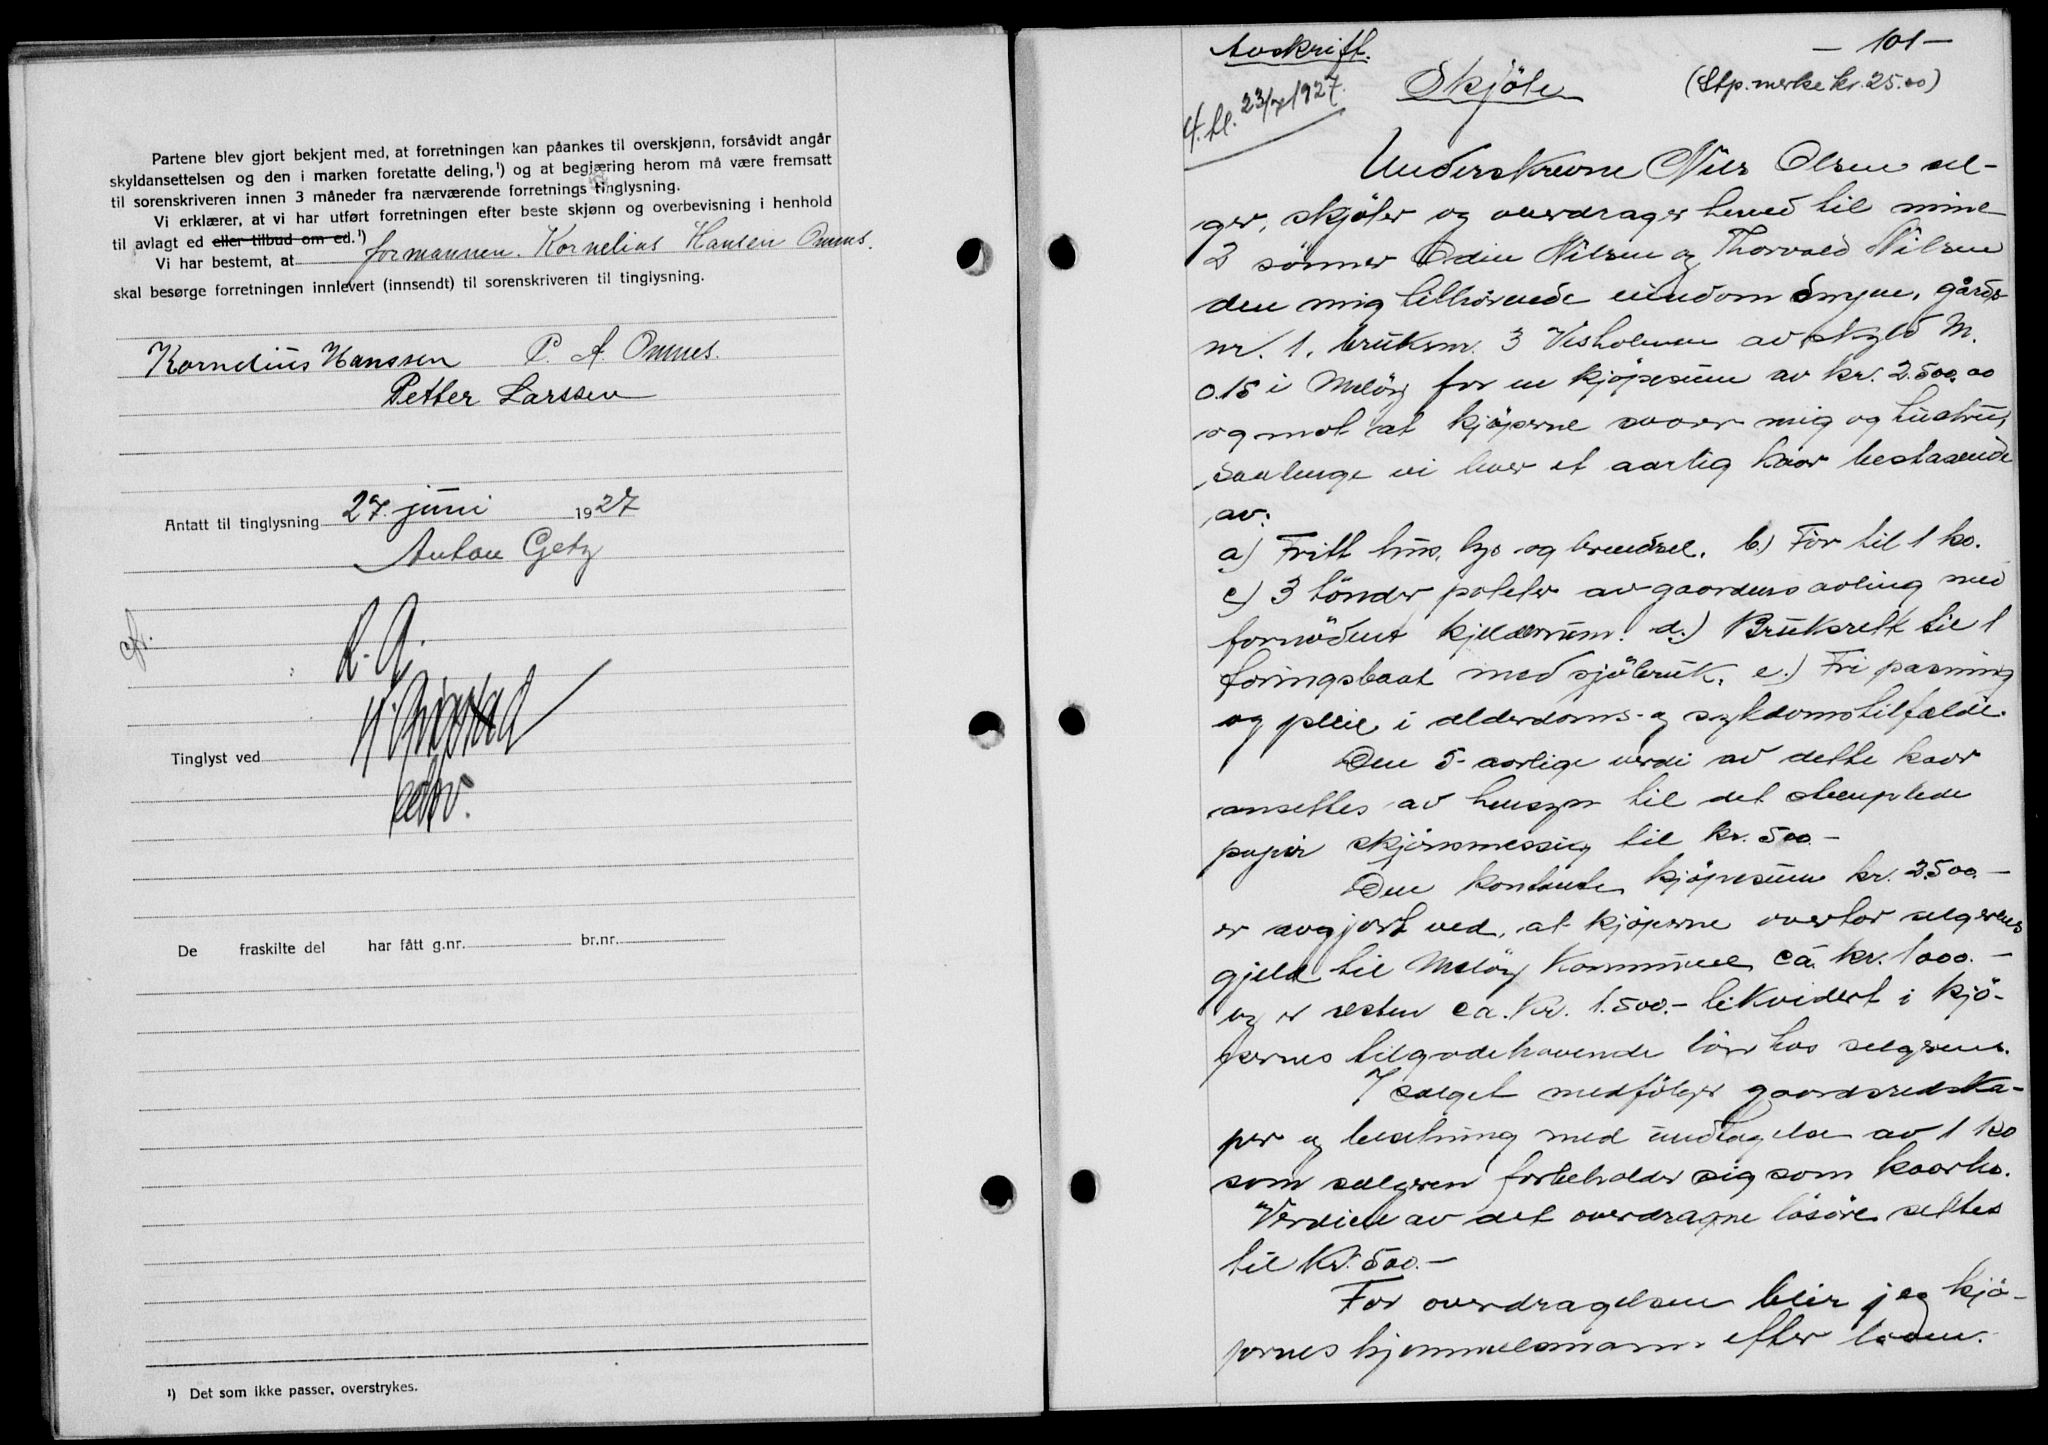 Partene blev gjort bekjent med, at forretningen kan påankes til overskjønn, forsåvidt angår
skyldansettelsen og den i marken foretatte deling,¹) og at begjæring herom må være fremsatt
til sorenskriveren innen 3 måneder fra nærværende forretnings tinglysning.
Vi erklærer, at vi har utført forretningen efter beste skjønn og overbevisning i henhold
til avlagt ed eller tilbud om ed.¹)
Vi har bestemt, at formannen. Kornelius Hansen Omnes.
skal besørge forretningen innlevert (innsendt) til sorenskriveren til tinglysning.
Kornelius Hanssen P. A. Omnes.
Petter Larssen
Antatt til tinglysning 27. juni 1927
Anton Getz
cfr.
Tinglyst ved
De fraskilte del har fått g.nr. br.nr.
¹) Det som ikke passer, overstrykes.
- 101 -
Avskrift.
Skjöte (Stp. merke kr. 25.00)
23/7 1927.
Underskrevne Nils Olsen sel-
ger, skjöter og overdrager herved til mine
2 sönner Odin Nilsen og Thorvald Nilsen
den mig tilhörende eiendom Smyen, gårds
nr. 1, bruksnr. 3 Visholmen av skyld M.
0.15 i Melöy for en kjöpesum av kr. 2.500.00
og mot at kjöperne svarer mig og hustru,
saalenge vi lever et aarlig kaar bestaaende
av:
a) Fritt hus, lys og brendsel. b.) Fòr til 1 ko.
c) 3 tönder poteter av gaardens avling med
fornödent kjelderrum. d.) Bruksrett til 1
föringsbaat med sjöbruk. e.) Fri pasning
og pleie i alderdoms- og sykdomstilfælde.
Den 5-aarlige verdi av dette kaar
ansettes av hensyn til det stemplede
papir skjönsmessig til kr. 500.-
Den kontante kjöpesum kr. 2.500.-
er avgjort ved, at kjöperne overtar selgerens
gjeld til Melöy Kommune ca. kr. 1000.-
og er resten ca. Kr. 1.500.- likvidert i kjö-
pernes tilgodehavende lönn hos selgeren.
I salget medfölger gaardsredska-
per og besetning med undtagelse av 1 ko
som selgeren forbeholder sig som kaarko.
Verdien av det overdragne lösöre settes
til Kr. 500.-
For overdragelsen blir jeg kjö-
pernes hjemmelsmann efter loven.